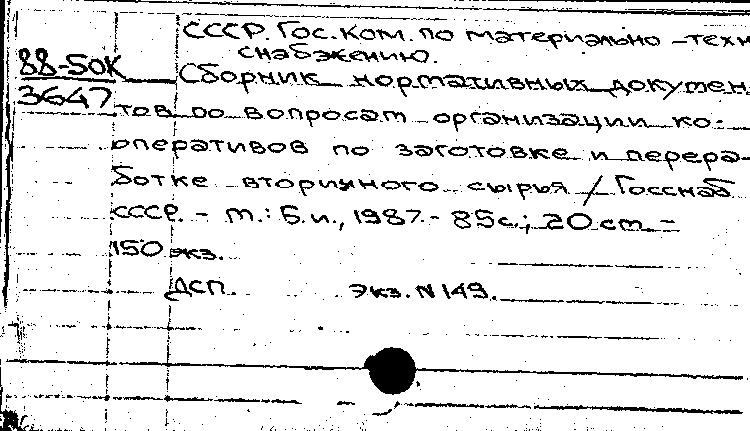 СССР. Гос. Ком. по материально-техн
снабжению.
88-50К
3647
Сборник нормативных докумен-
тов по вопросам организации ко-
оперативов по заготовке и перера-
ботке вторичного сырья / Госснаб
СССР. - М.: Б.и., 1987.- 85с.; 20 см. -
150 экз.
ДСП. Экз. N 149.